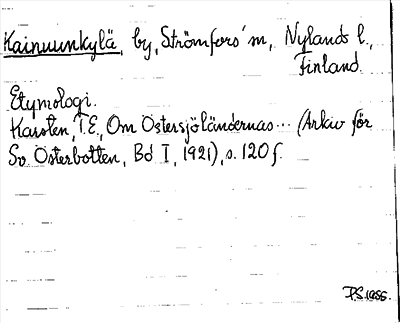 Kainuunkylä, by, Strömfors' sn, Nylands l.,
Finland.
Etymologi.
Karsten, T.E., Om Östersjöländernas ... (Arkiv för
Sv. Österbotten, Bd I, 1921), s. 120 f.
P.S. 1955.